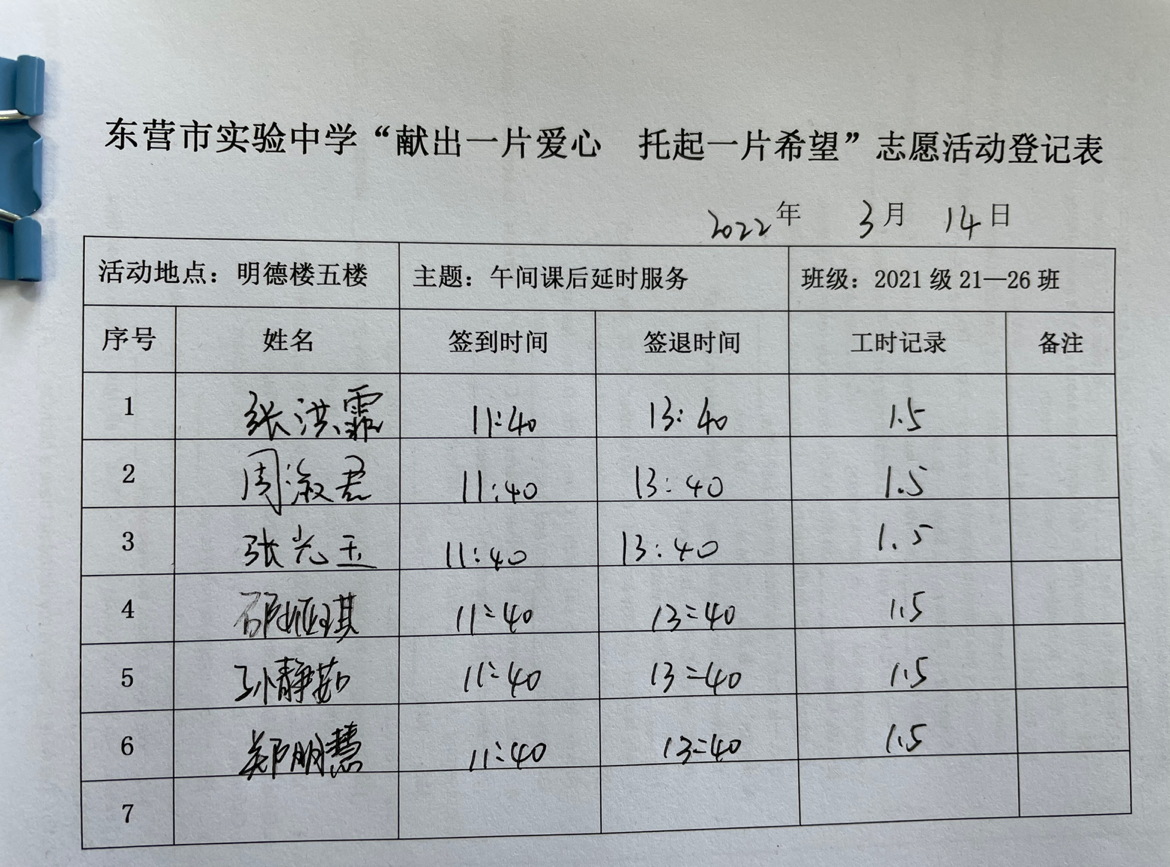 东营市实验中学“献出一片爱心 托起一片希望”志愿活动登记表
2022年 3月 14日
活动地点：明德楼五楼 主题：午间课后延时服务 班级：2021 级 21—26 班
序号 姓名 签到时间 签退时间 工时记录 备注
1 张洪霏 11:40 13:40 1.5
2 周淑君 11:40 13:40 1.5
3 张光玉 11:40 13:40 1.5
4 11:40 13:40 1.5
5 孙静茹 11:40 13:40 1.5
6 郑明慧 11:40 13:40 1.5
7